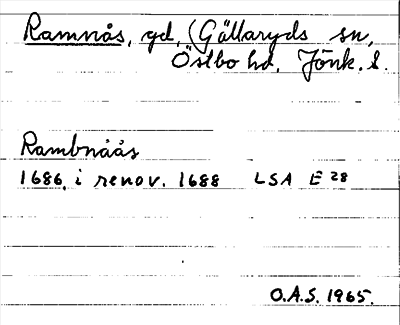 Ramnås, gd, (Gällaryds sn,
Östbo hd, Jönk. l.
Rambnåås
1686, i renov. 1688 LSA E 28
O.A.S. 1965.